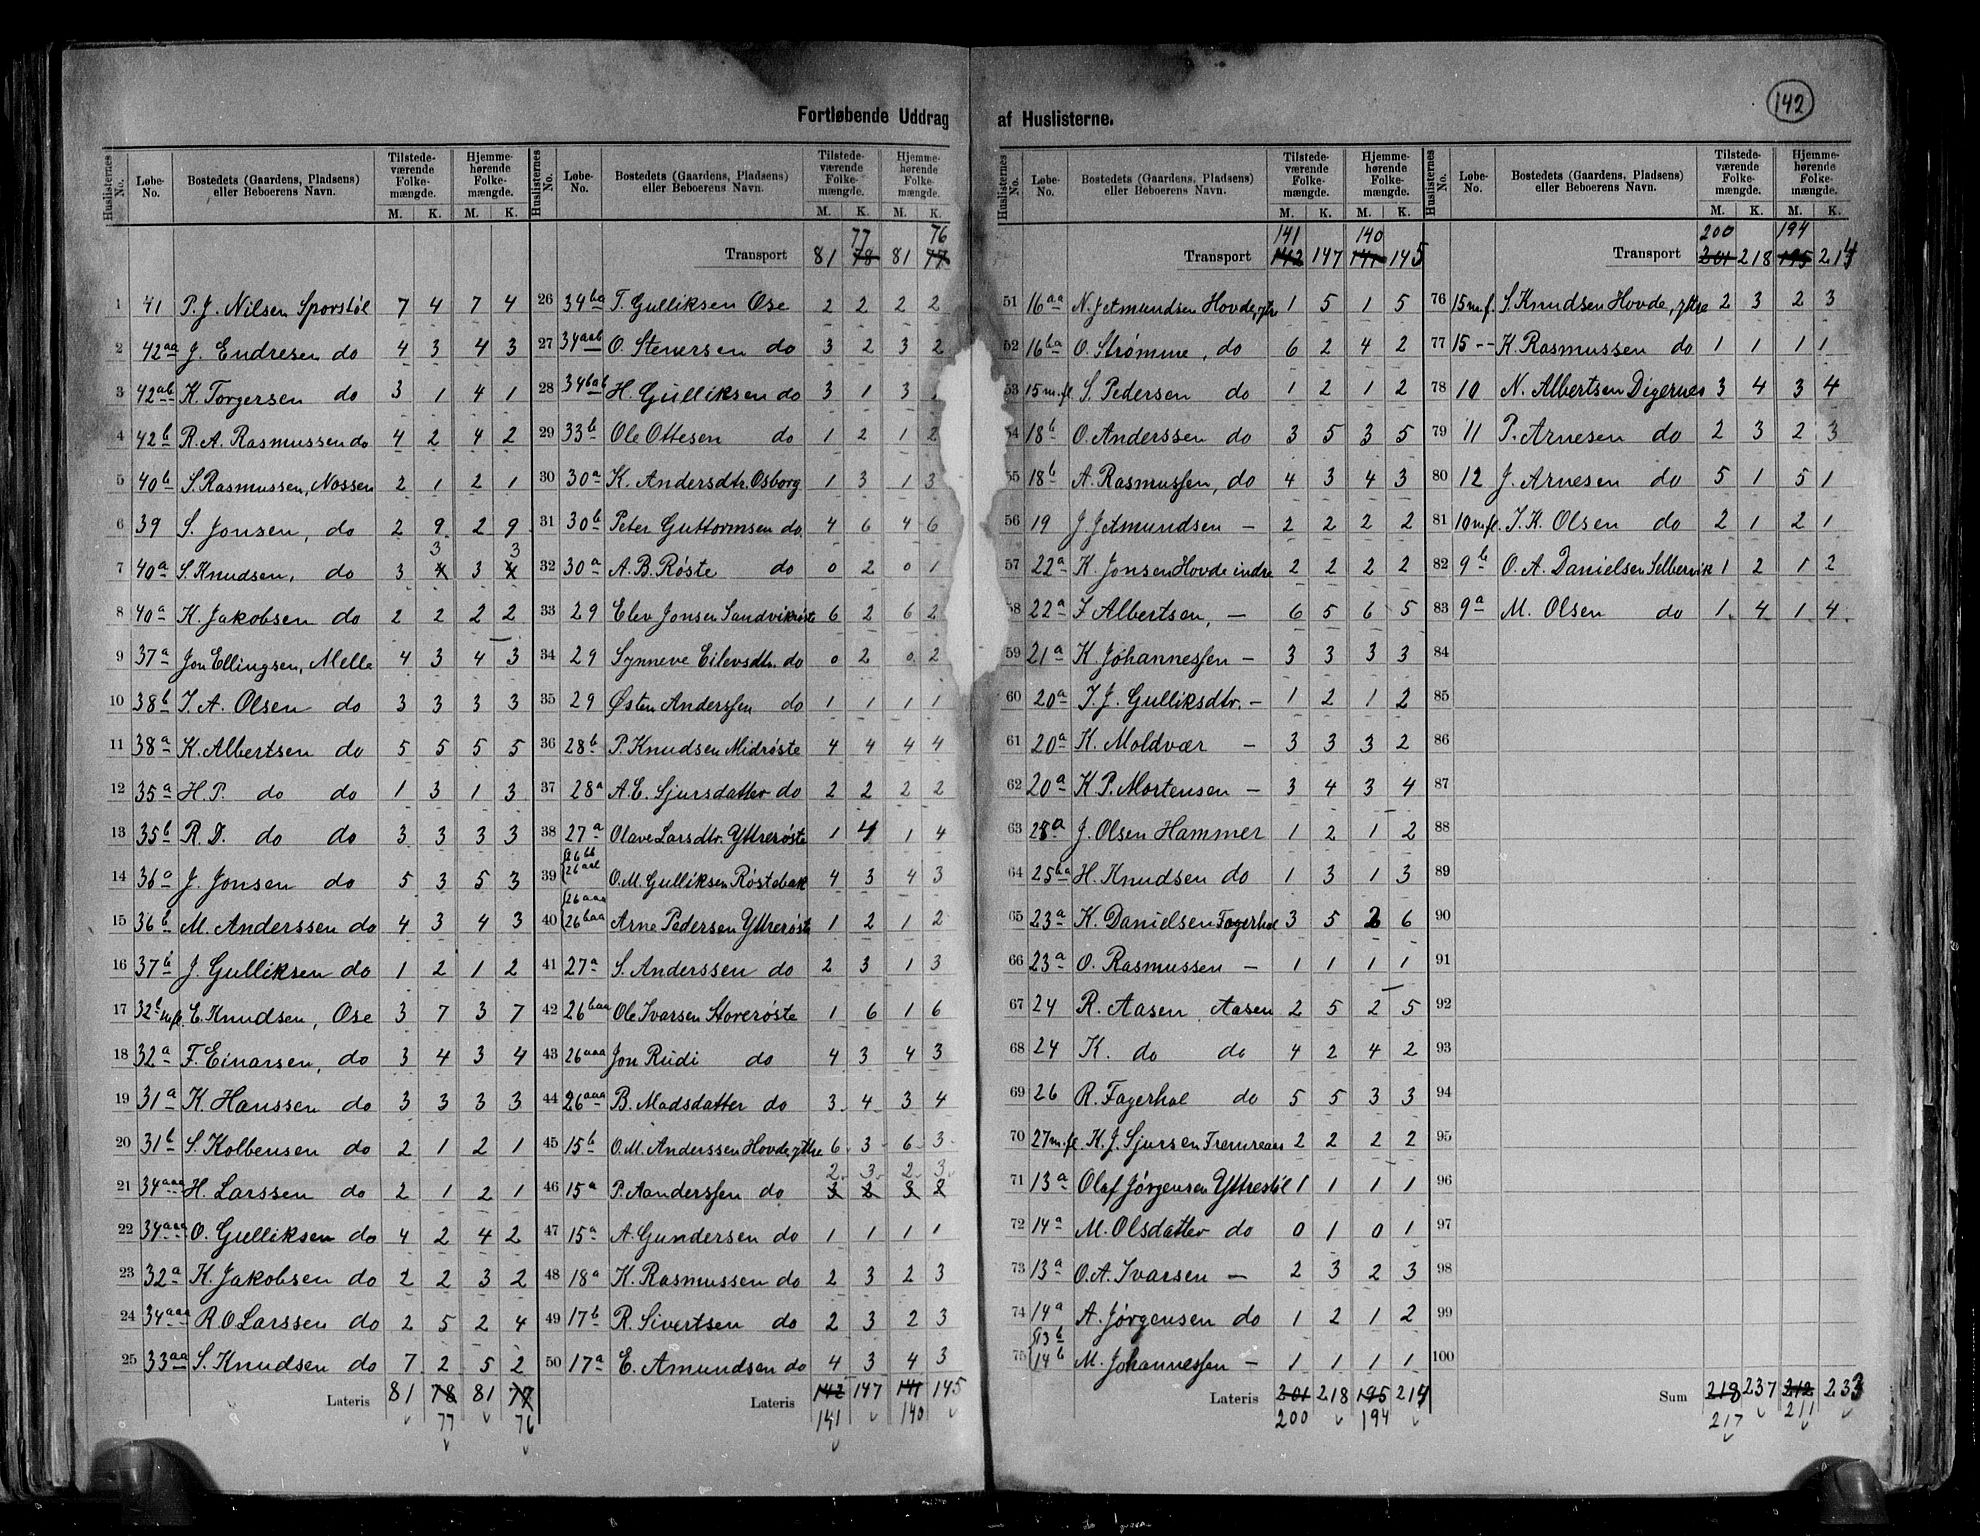 142
Fortløbende Uddrag af Huslisterne.
Huslisternes No. Løbe-No. Bostedets (Gaardens, Pladsens) eller Beboerens Navn. Tilstedeværende Folkemængde. M. K. Hjemmehørende Folkemængde. M. K.
1 41 P. J. Nilsen Sporstøl 7 4 7 4
2 42aa J. Endresen do 4 3 4 3
3 42ab K. Torgersen do 3 1 4 1
4 42b R. A. Rasmussen do 4 2 4 2
5 40b S. Rasmussen, Nossen 2 1 2 1
6 39 S. Jonsen, do 2 9 2 9
7 40a S. Knudsen, do 3 3 3 3
8 40a K. Jakobsen do 2 2 2 2
9 37a Jon Ellingsen, Melle 4 3 4 3
10 38b I. A. Olsen do 3 3 3 3
11 38a K. Albertsen do 5 5 5 5
12 35a H. P. do do 1 3 1 3
13 35b R. D. do do 3 3 3 3
14 36a J. Jonsen do 5 3 5 3
15 36b M. Anderssen do 4 3 4 3
16 37b J. Gulliksen do 1 2 1 2
17 32b m.fl. E. Knudsen, Ose 3 7 3 7
18 32a F. Einarsen, do 3 4 3 4
19 31a K. Hanssen do 3 3 3 3
20 31b S. Kolbensen do 2 1 2 1
21 34aaa H. Larssen do 2 1 2 1
22 34aaa O. Gulliksen do 4 2 4 2
23 32a K. Jakobsen do 2 2 3 2
24 34aaa R O Larssen do 2 5 2 4
25 33aa S. Knudsen do 7 2 5 2
Lateris 81 78 81 77
77 76
Huslisternes No. Løbe-No. Bostedets (Gaardens, Pladsens) eller Beboerens Navn. Tilstedeværende Folkemængde. M. K. Hjemmehørende Folkemængde. M. K.
77 76
Transport 81 78 81 77
26 34ba T. Gulliksen Ose 2 2 2 2
27 34aab O. Stenersen do 3 2 3 2
28 34bab H. Gulliksen do 3 1 3
29 33b Ole Ottesen do 1 2 1 2
30 30a K. Andersdtr. Osborg 1 3 1 3
31 30b Peter Guttormsen do 4 6 4 6
32 30a A. B. Røste do 0 2 0 1
33 29 Elev Jonsen Sandvikrøste 6 2 6 2
34 29 Synneve Eilevsdtr. do 0 2 0 2
35 29 Østen Anderssen do 1 1 1 1
36 28b P. Knudsen Midrøste 4 4 4 4
37 28a A. E. Sjursdatter do 2 2 2 2
38 27a Olave Larsdtr. Yttrerøste 1 4 1 4
39 26bb 26aal O. M. Gulliksen Røstebak 4 3 4 3
40 26aaa 26baa Arne Pedersen Yttrerøste 1 2 1 2
41 27a S. Anderssen do 2 3 1 3
42 26baa Ole Ivarsen Storerøste 1 6 1 6
43 26aaa Jon Rüdi do 4 3 4 3
44 26aaa B. Madsdatter do 3 4 3 4
45 15b O. M. Anderssen Hovde, yttre 6 3 6 3
46 15a P. Aanderssen do 2 3 2 3
47 15a A. Gundersen do 1 1 1 1
48 18a K. Rasmussen do 2 3 2 3
49 17b R. Sivertsen do 2 3 2 3
50 17a E. Amundsen do 4 3 4 3
Lateris 142 147 141 145
141 140
Huslisternes No. Løbe-No. Bostedets (Gaardens, Pladsens) eller Beboerens Navn. Tilstedeværende Folkemængde. M. K. Hjemmehørende Folkemængde. M. K.
141 140
Transport 142 147 141 145
51 16aa N. Jetmundsen Hovde, ytre 1 5 1 5
52 16ba O. Strømme, do 6 2 4 2
53 15m.fl. S. Pedersen do 1 2 1 2
54 18b O. Anderssen do 3 5 3 5
55 18b A. Rasmussen, do 4 3 4 3
56 19 J. Jetmundsen — 2 2 2 2
57 22a K. Jonsen Hovde indre 2 2 2 2
58 22a F. Albertsen, — 6 5 6 5
59 21a K. Johannessen — 3 3 3 3
60 20a I. J. Gulliksdtr. — 1 2 1 2
61 20a K. Moldvær — 3 3 3 2
62 20a K. P. Mortensen — 3 4 3 4
63 28a J. Olsen Hammer 1 2 1 2
64 25ba H. Knudsen do 1 3 1 3
65 23a K. Danielsen Fagerhol 3 5 2 6
66 23a O. Rasmussen — 1 1 1 1
67 24 R. Aasen Aasen 2 5 2 5
68 24 K. do do 4 2 4 2
69 26 R. Fagerhol do 5 5 3 3
70 27m.fl. K. J. Sjursen 2 2 2 2
71 13a Olaf Jørgensen Yttrestøl 1 1 1 1
72 14a M. Olsdatter do 0 1 0 1
73 13a O. A. Ivarsen — 2 3 2 3
74 14a A. Jørgensen do 1 2 1 2
75 13b 14b M. Johannessen — 1 1 1 1
Lateris 201 218 195 214
200 194
Huslisternes No. Løbe-No. Bostedets (Gaardens, Pladsens) eller Beboerens Navn. Tilstedeværende Folkemængde. M. K. Hjemmehørende Folkemængde. M. K.
200 194
Transport 201 218 195 214
76 15m.fl. S. Knudsen Hovde, yttre 2 3 2 3
77 15 -- K. Rasmussen do 1 1 1 1
78 10 N. Albertsen Digernes 3 4 3 4
79 11 P. Arnesen do 2 3 2 3
80 12 J. Arnesen do 5 1 5 1
81 10m.fl. I. K. Olsen do 2 1 2 1
82 9b O. A. Danielsen Selbervik 1 2 1 2
83 9a M. Olsen do 1 4 1 4
84
85
86
87
88
89
90
91
92
93
94
95
96
97
98
99
100
Sum 218 237 212 233
217 211